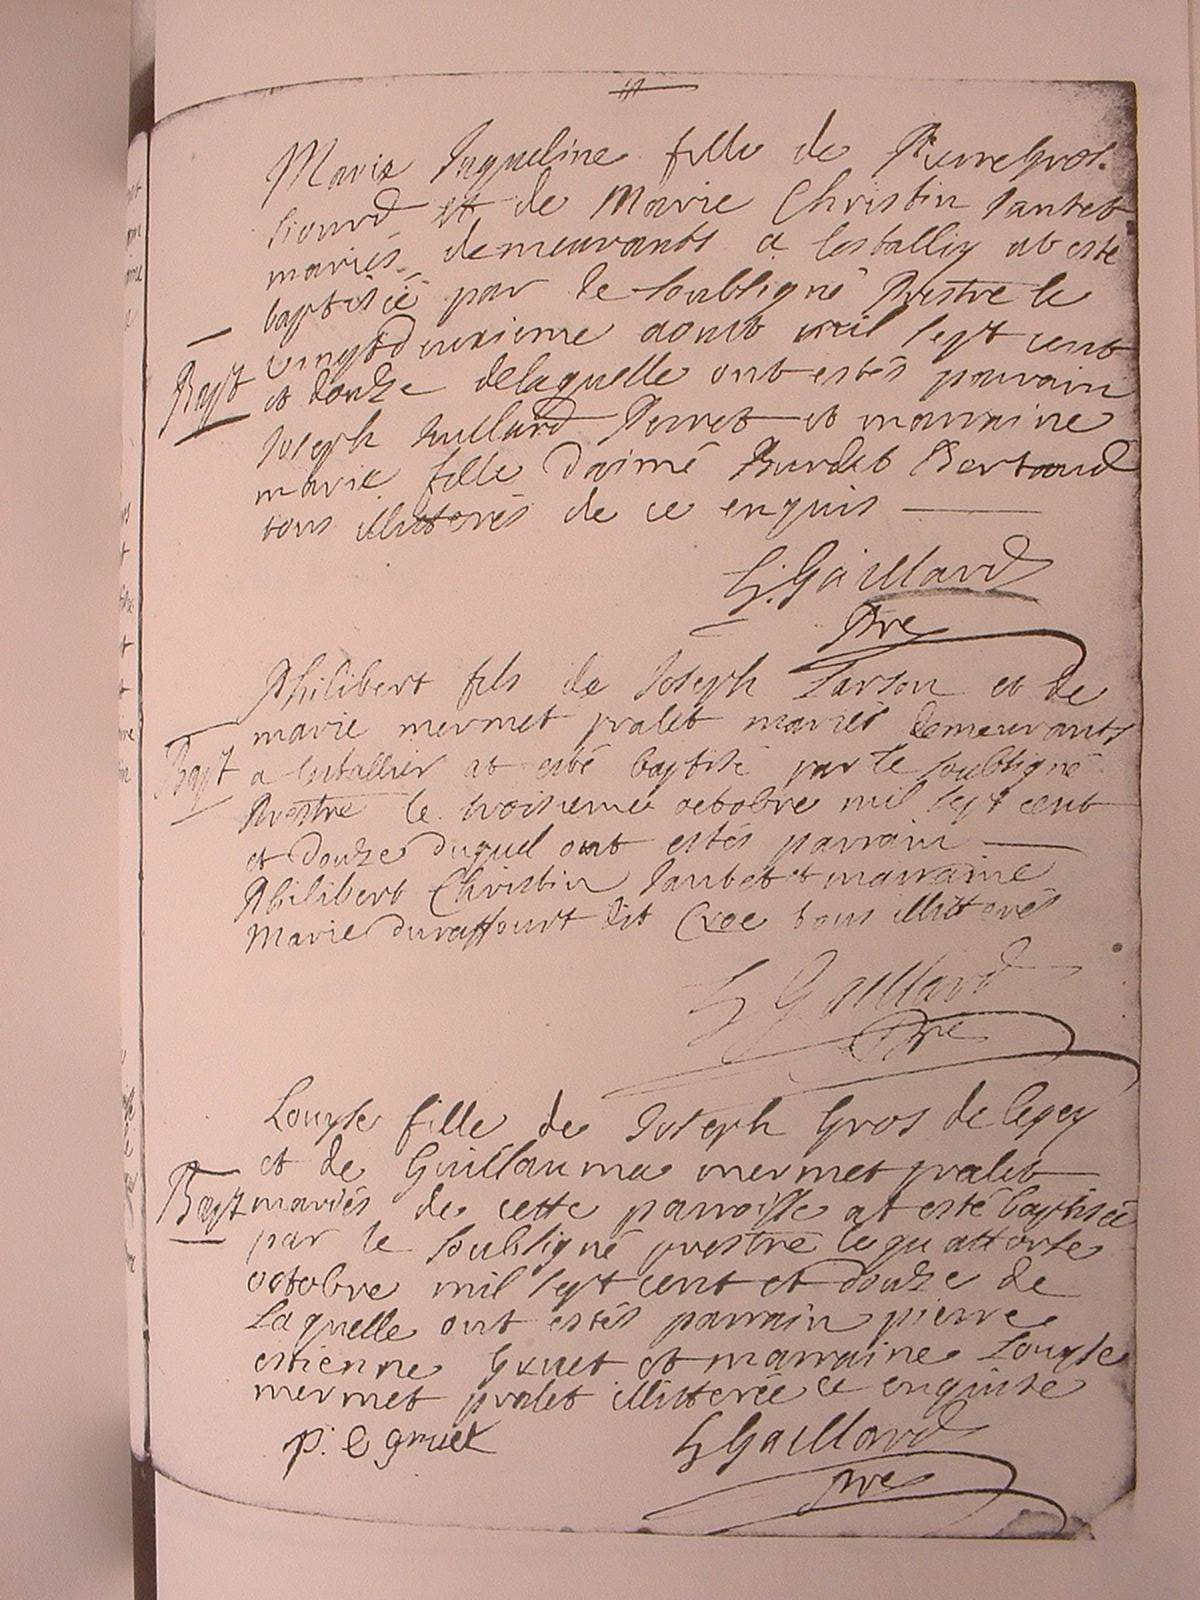 Marie Jaqueline fille de Pierre Gros-
et de Marie Christin Jantet
mariés demeurants a Lestallier at esté
baptisée par le soubsigné Prestre le
vingt deuxieme aoust mil sept cent
Bapt et douze de laquelle ont estés parrain
Joseph Perret et marraine
marie fille d'aimé Burdet Bertaud
tous illitterés de ce enquis
G. Gaillard
Pre
Philibert fils de Joseph Larson et de
marie mermet pralet mariés demeurants
Bapt a Lestallier at esté baptisé par le soubsigné
Prestre le troisieme octobre mil sept cent
et douze duquel ont estés parrain
Philibert Christin Jantet et marraine
Marie duraffourt dit Croe tous illitterés
G Gaillard
Pre
Louyse fille de Joseph Gros de
et de Guillauma mermet pralet
Bapt mariés de cette parroisse at esté baptisée
par le soubsigné prestre le quattorse
octobre mil sept cent et douze de
Laquelle ont estés parrain pierre
estienne Gruet et marraine Louyse
mermet pralet illitterée ce enquise
p. e gruet G Gaillard
pre